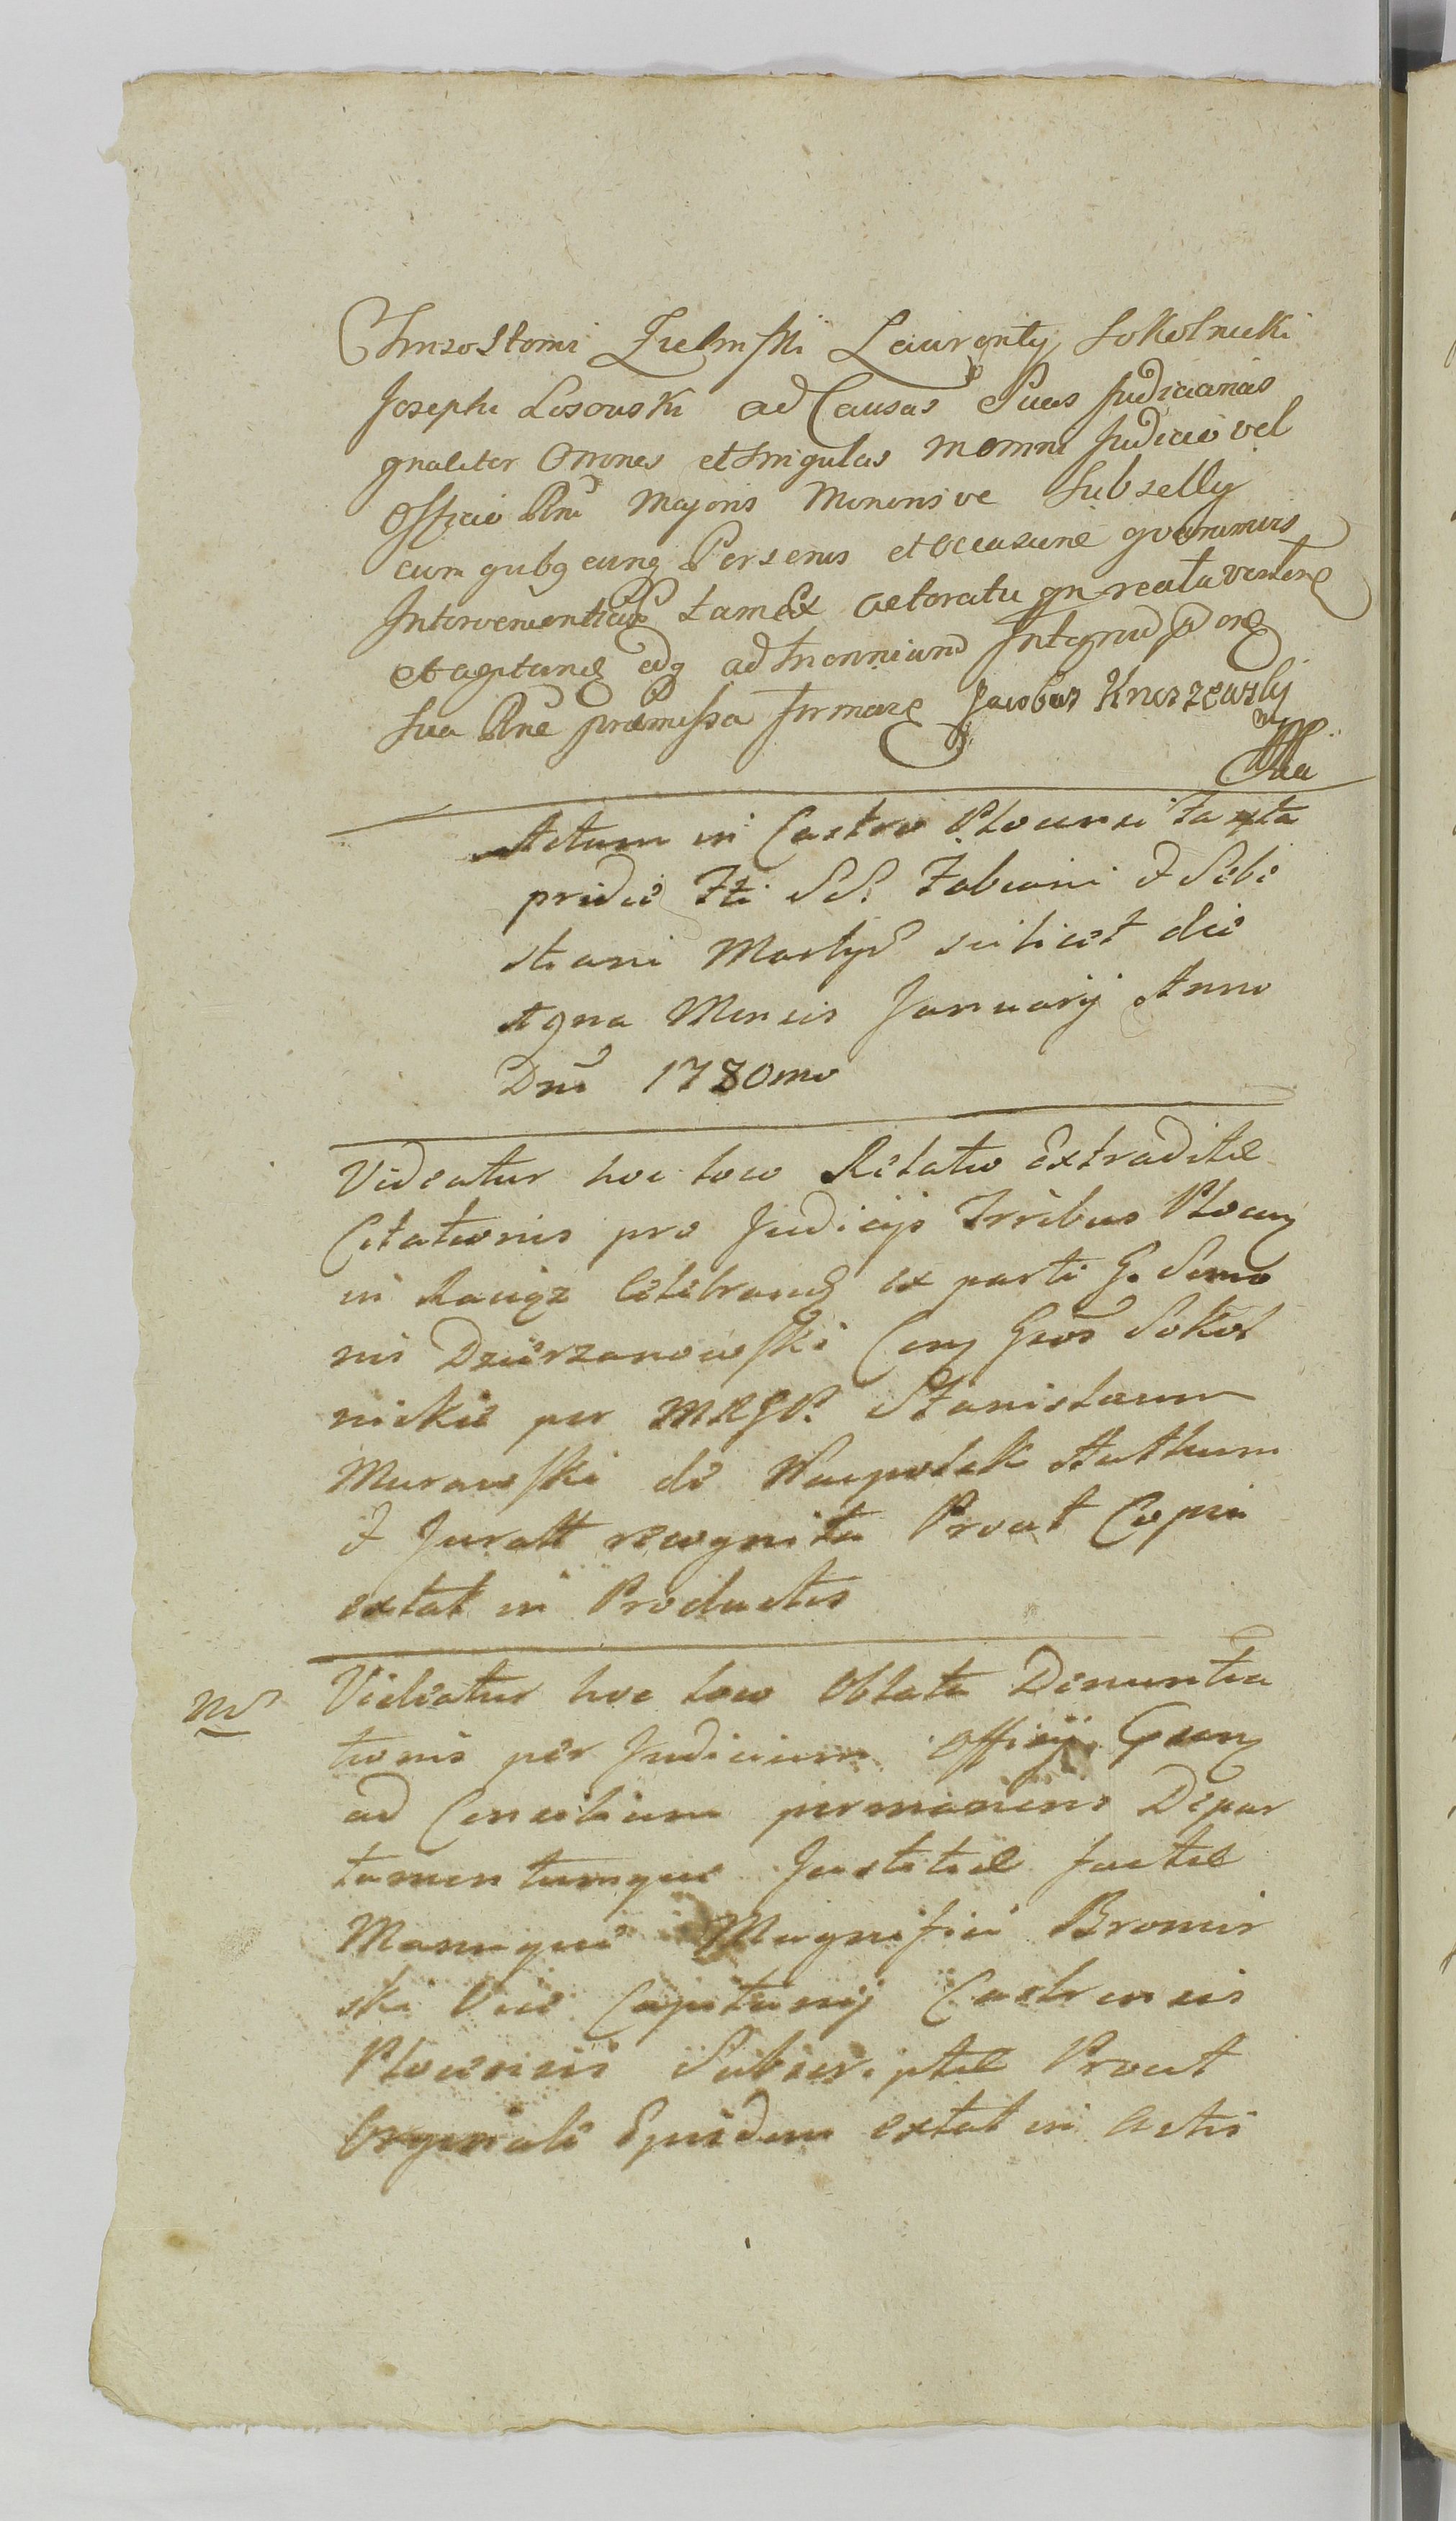 Chrizostomi Zielinski Laurenty Sokolnicki
Josephi Lisowski ad Causas Suas Judiciarias
gnaliter Omnes et Singulas in omni Judicio vel
Officio Rni Majoris Minorisve Subselly
cum quibq cunq Personis et occasione quorumvis
Intervenientia tam Ex actoratu qn reatu
adq ad triennium Integrum
Sua Rne præmissa firmare Jacobus
mpp.
Actum in Castro Plocensi Fa 4ta
pridie Fti SS. Fabiani & Seba
stiani Martyr scilicet die
19na Mensis January Anno
Dni 1780mo
Videatur hoc loco Relatio Extraditæ
Citationis pro Judicijs Trribus Plocen
in Raciąz Celebrand ex parte G. Simo
nis Dzierzanowski Con Gsos Sokol
nickie per MRGP. Stanislaum
Murawski de Authum
& Juratt recognita Prout Copia
extat in Productis
Videatur hoc loco Oblata Denuntia
tionis per Judicium Officij
ad Consilium permanens Depar
tamentumque Justitiæ factæ
Manuque Magnifici Bromir
ski Vice Capitanij Castrensis
Plocensis Subscriptæ Prout
Orginale Ejusdem extat in Actis